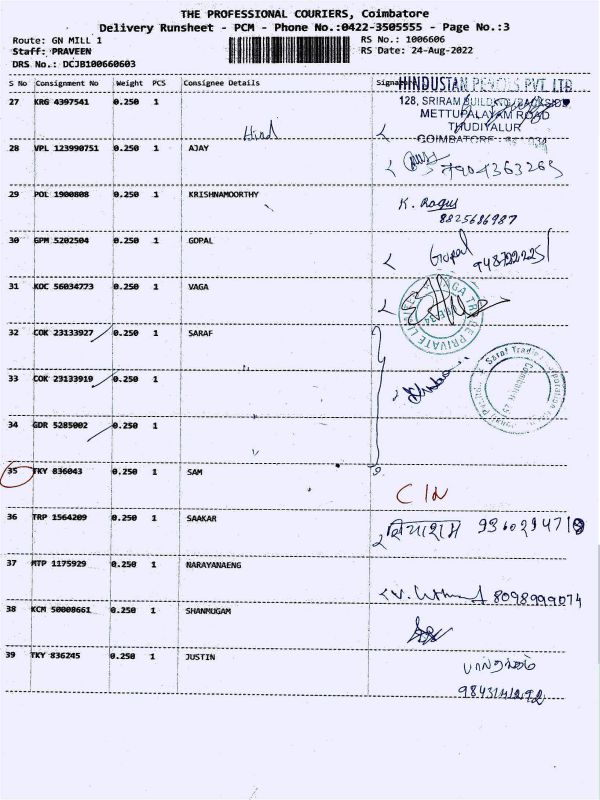 THE PROFESSIONAL COURIERS, Coimbatore
Delivery Runsheet - PCM - Phone No.:0422-3505555 - Page No.:3
Route: GN MILL 1 RS No.: 1006606
Staff: PRAVEEN RS Date: 24-Aug-2022
DRS No.: DCJB100660603
S No Consignment No Weight PCS Consignee Details
HINDUSTAN PENCILS PVT. LTD
27 KRG 4397541 0.250 1
128, SRIRAM
METTUPALAYAM ROAD
THUDIYALUR
Hind
COIMBATORE
28 VPL 123990751 0.250 1 AJAY
29 POL 1900808 0.250 1 KRISHNAMOORTHY K. Ragu
8825686987
30 GPM 5202504 0.250 1 GOPAL Gopal
31 KOC 56034773 0.250 1 VAGA
32 COK 23133927 0.250 1 SARAF
33 COK 23133919 0.250 1
34 GDR 5285002 0.250 1
35 TKY 836043 0.250 1 SAM
36 TRP 1564209 0.250 1 SAAKAR
37 MTP 1175929 0.250 1 NARAYANAENG
8098999074
38 KCM 50000661 0.250 1 SHANMUGAM
39 TKY 836245 0.250 1 JUSTIN